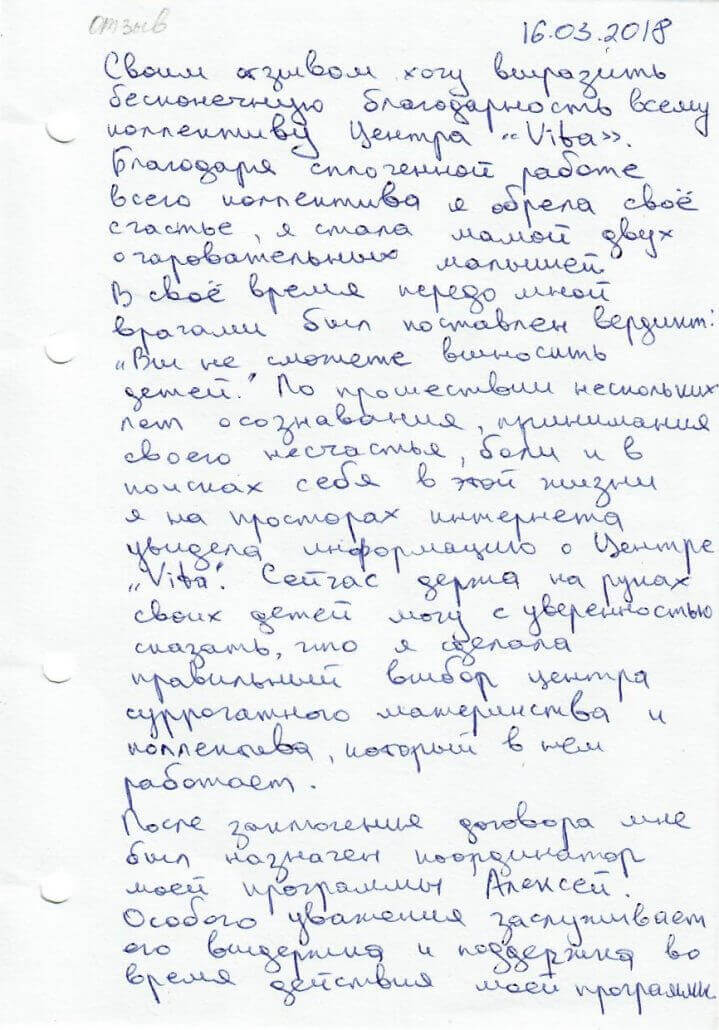 отзыв
16.03.2018
Своим отзывом хочу выразить
бесконечную благодарность всему
коллективу Центра «Vita».
Благодаря сплоченной работе
всего коллектива я обрела своё
счастье, я стала мамой двух
очаровательных малышей
В своё время передо мной
врачами был поставлен вердикт:
„Вы не сможете выносить
детей." По прошествии нескольких
лет осознавания, принимания
своего несчастья, боли и в
поисках себя в этой жизни
я на просторах интернета
увидела информацию о Центре
„Vita". Сейчас держа на руках
своих детей могу с уверенностью
сказать, что я сделала
правильный выбор центра
суррогатного материнства и
коллектива, который в нем
работает.
После заключения договора мне
был назначен координатор
моей программы Алексей.
Особого уважения заслуживает
его выдержка и поддержка во
время действия моей программы.